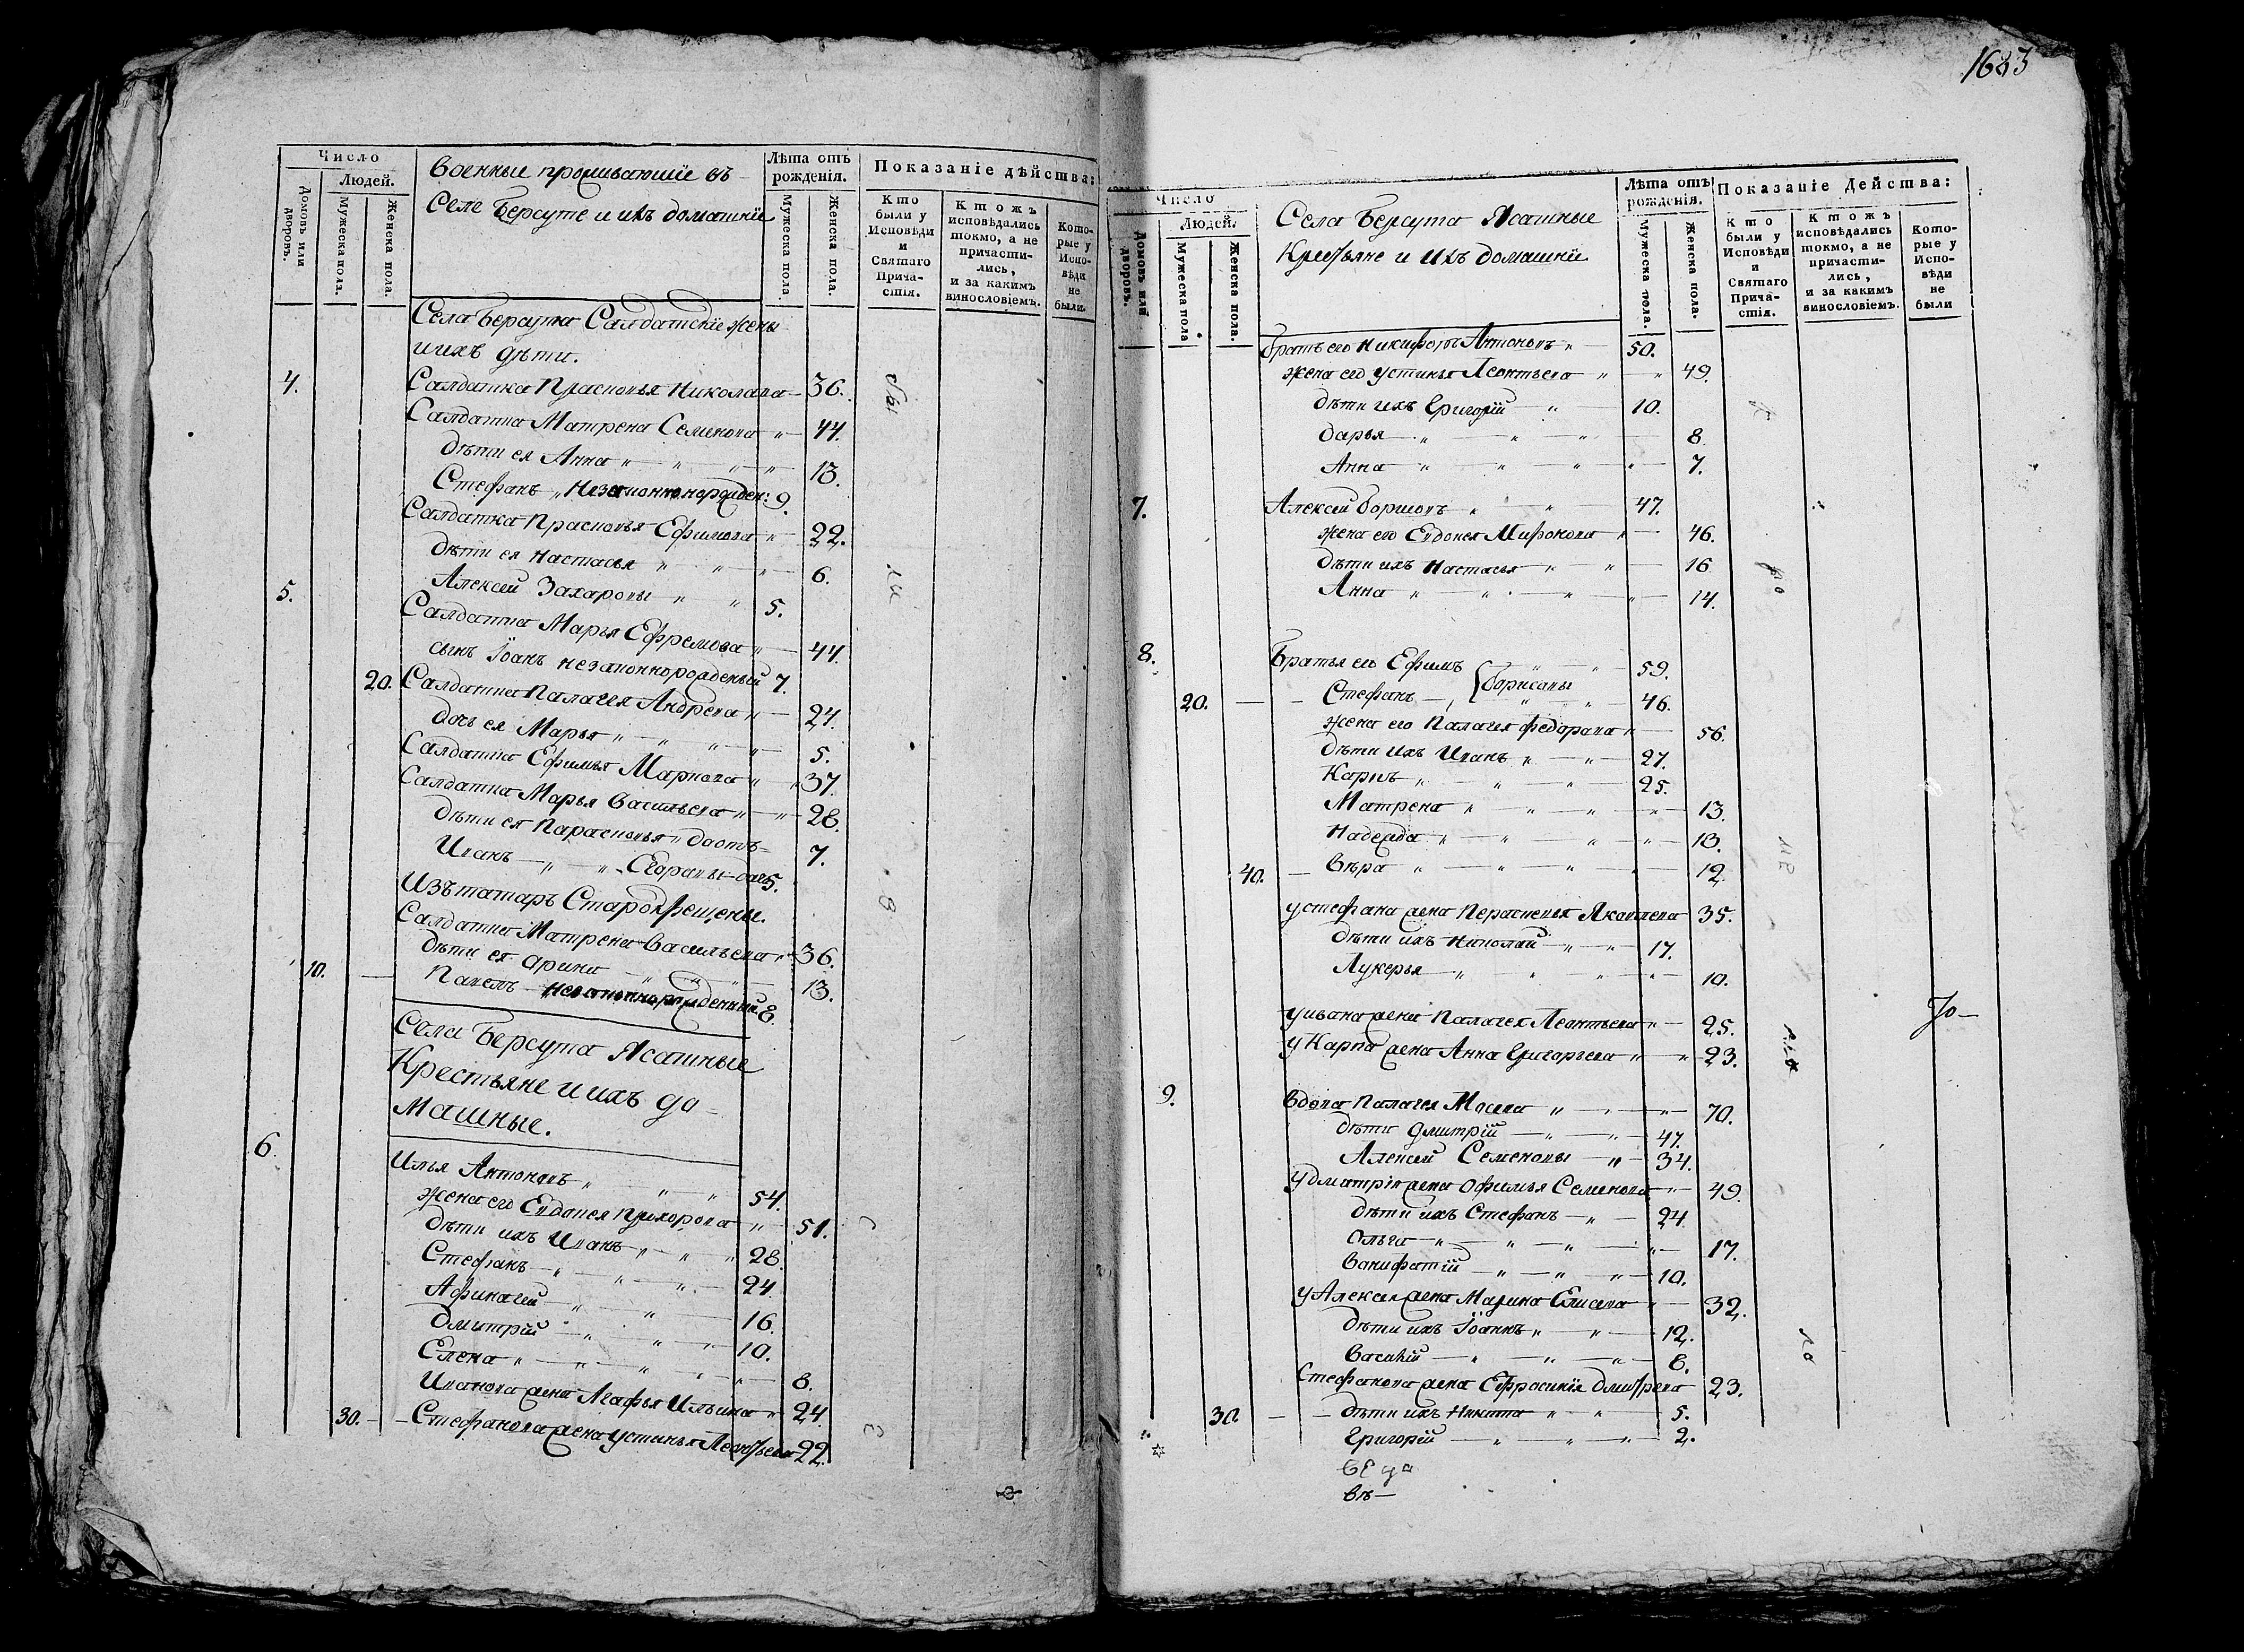 1683
Число
Людей.
Домовъ или дворовъ.
Мужеска пола.
Женска пола.
Военные проживающïе въ
Селе Берсуте и ихъ домашнïе
Лѣта отъ рожденïя.
Мужеска пола.
Женска пола.
Показанïе дѣйства:
Кто были у Исповѣди и Святаго Причастïя.
Ктожъ исповѣдались токмо, а не причастились, и за какимъ винословïемъ.
Которые у Исповѣди не были.
Села Берсута Салдатскïе жены
и ихъ дѣти.
4. Салдатка Прасковья Николаева 36.
Салдатка Матрена Семенова 44.
дѣти ея Анна 13.
Стефанъ Незаконнорожден: 9.
Салдатка Прасковья Ефимова 22.
дѣти ея Настасья 6.
Алексей Захаровы 5.
5. Салдатка Марья Ефремова 44.
сынъ Іоанъ незаконнорожденый 7.
20. Салдатка Палагея Андреева 24.
дочь ея Марья 5.
Салдатка Ефимья Маркова 37.
Салдатка Марья Васильева 28.
дѣти ея Парасковья 7.
Иванъ Егоровы 5.
Изъ татаръ Старокрещены.
Салдатка Матрена Васильева 36.
дѣти ея Арина 13.
10. Павелъ незаконнорожденный 8.
Села Берсута Ясашные
Крестьяне и ихъ до-
машные.
6. Илья Антоновъ 54.
жена его Евдокея Прохорова 51.
дѣти ихъ Иванъ 28.
Стефанъ 24.
Афинагей 16.
Дмитрïй 10.
Елена 8.
Иванова жена Агафья Ильина 24.
30. Стефанова жена Устинья Леонтьева 22.
Число
Людей.
Домовъ или дворовъ.
Мужеска пола
Женска пола.
Села Берсута Ясашные
Крестьяне и ихъ домашнïе
Лѣта отъ рожденïя.
Мужеска пола.
Женска пола.
Показанïе Действа:
Кто были у Исповѣди и Святаго Причастïя.
Ктожъ исповѣдались токмо, а не причастились, и за какимъ винословïемъ.
Которые у Исповѣди не были
Братъ его Никифоръ Антоновъ 50.
жена его Устинья Леонтьева 49.
дѣти ихъ Григорïй 10.
Дарья 8.
Анна 7.
7. Алексей Борисовъ 47.
жена его Евдокея Миронова 46.
дѣти ихъ Настасья 16
Анна 14.
8. Братья его Ефимъ 59.
20. Стефанъ Борисовы 46.
жена его Палагея Федорова 56.
дѣти ихъ Иванъ 27.
Карпъ 25.
Матрена 13.
Надежда 13.
40. Вѣра 12.
у Стефана жена Парасковья Яковлева 35.
дѣти ихъ Николай 17.
Лукерья 10.
у Ивана жена Палагея Леонтьева 25.
у Карпа жена Анна Григорьева 23.
9. Вдова Палагея Мосева 70.
дѣти Дмитрïй 47.
Алексей Семеновы 34.
у Дмитрïя жена Офимья Семенова 49.
дѣти ихъ Стефанъ 24.
Ольга 17.
Вонифатïй 10.
у Алексея жена Марина Елисева 32.
дѣти ихъ Іоаннъ 12.
Василïй 6.
Стефанова жена Ефросинïя Дмитрева 23.
30. дѣти ихъ Никита 5.
Григорïй 2.